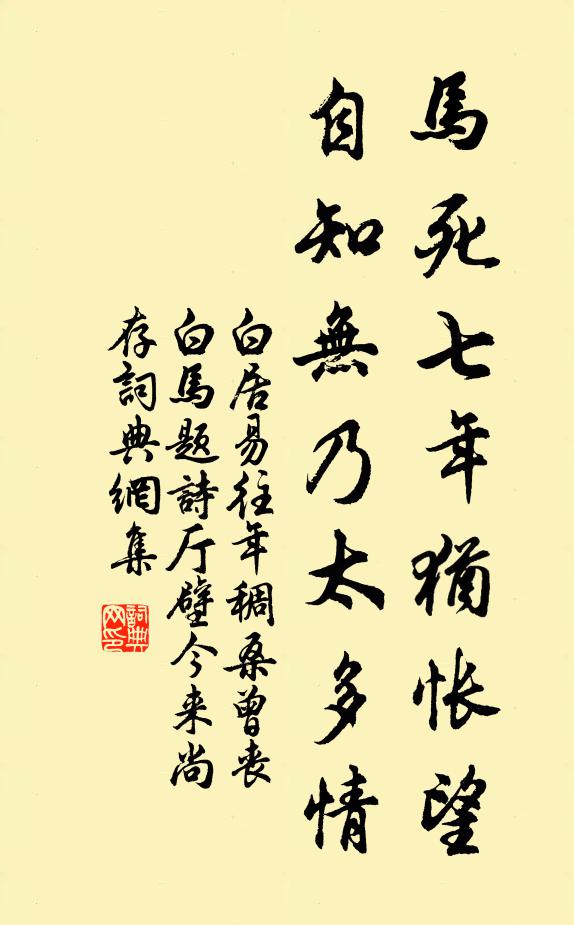 馬死七年猶悵望
自知無乃太多情
白居易往年稠桑曾丧
白馬题詩厅壁今来尚
存詞典網集
詞典
网印